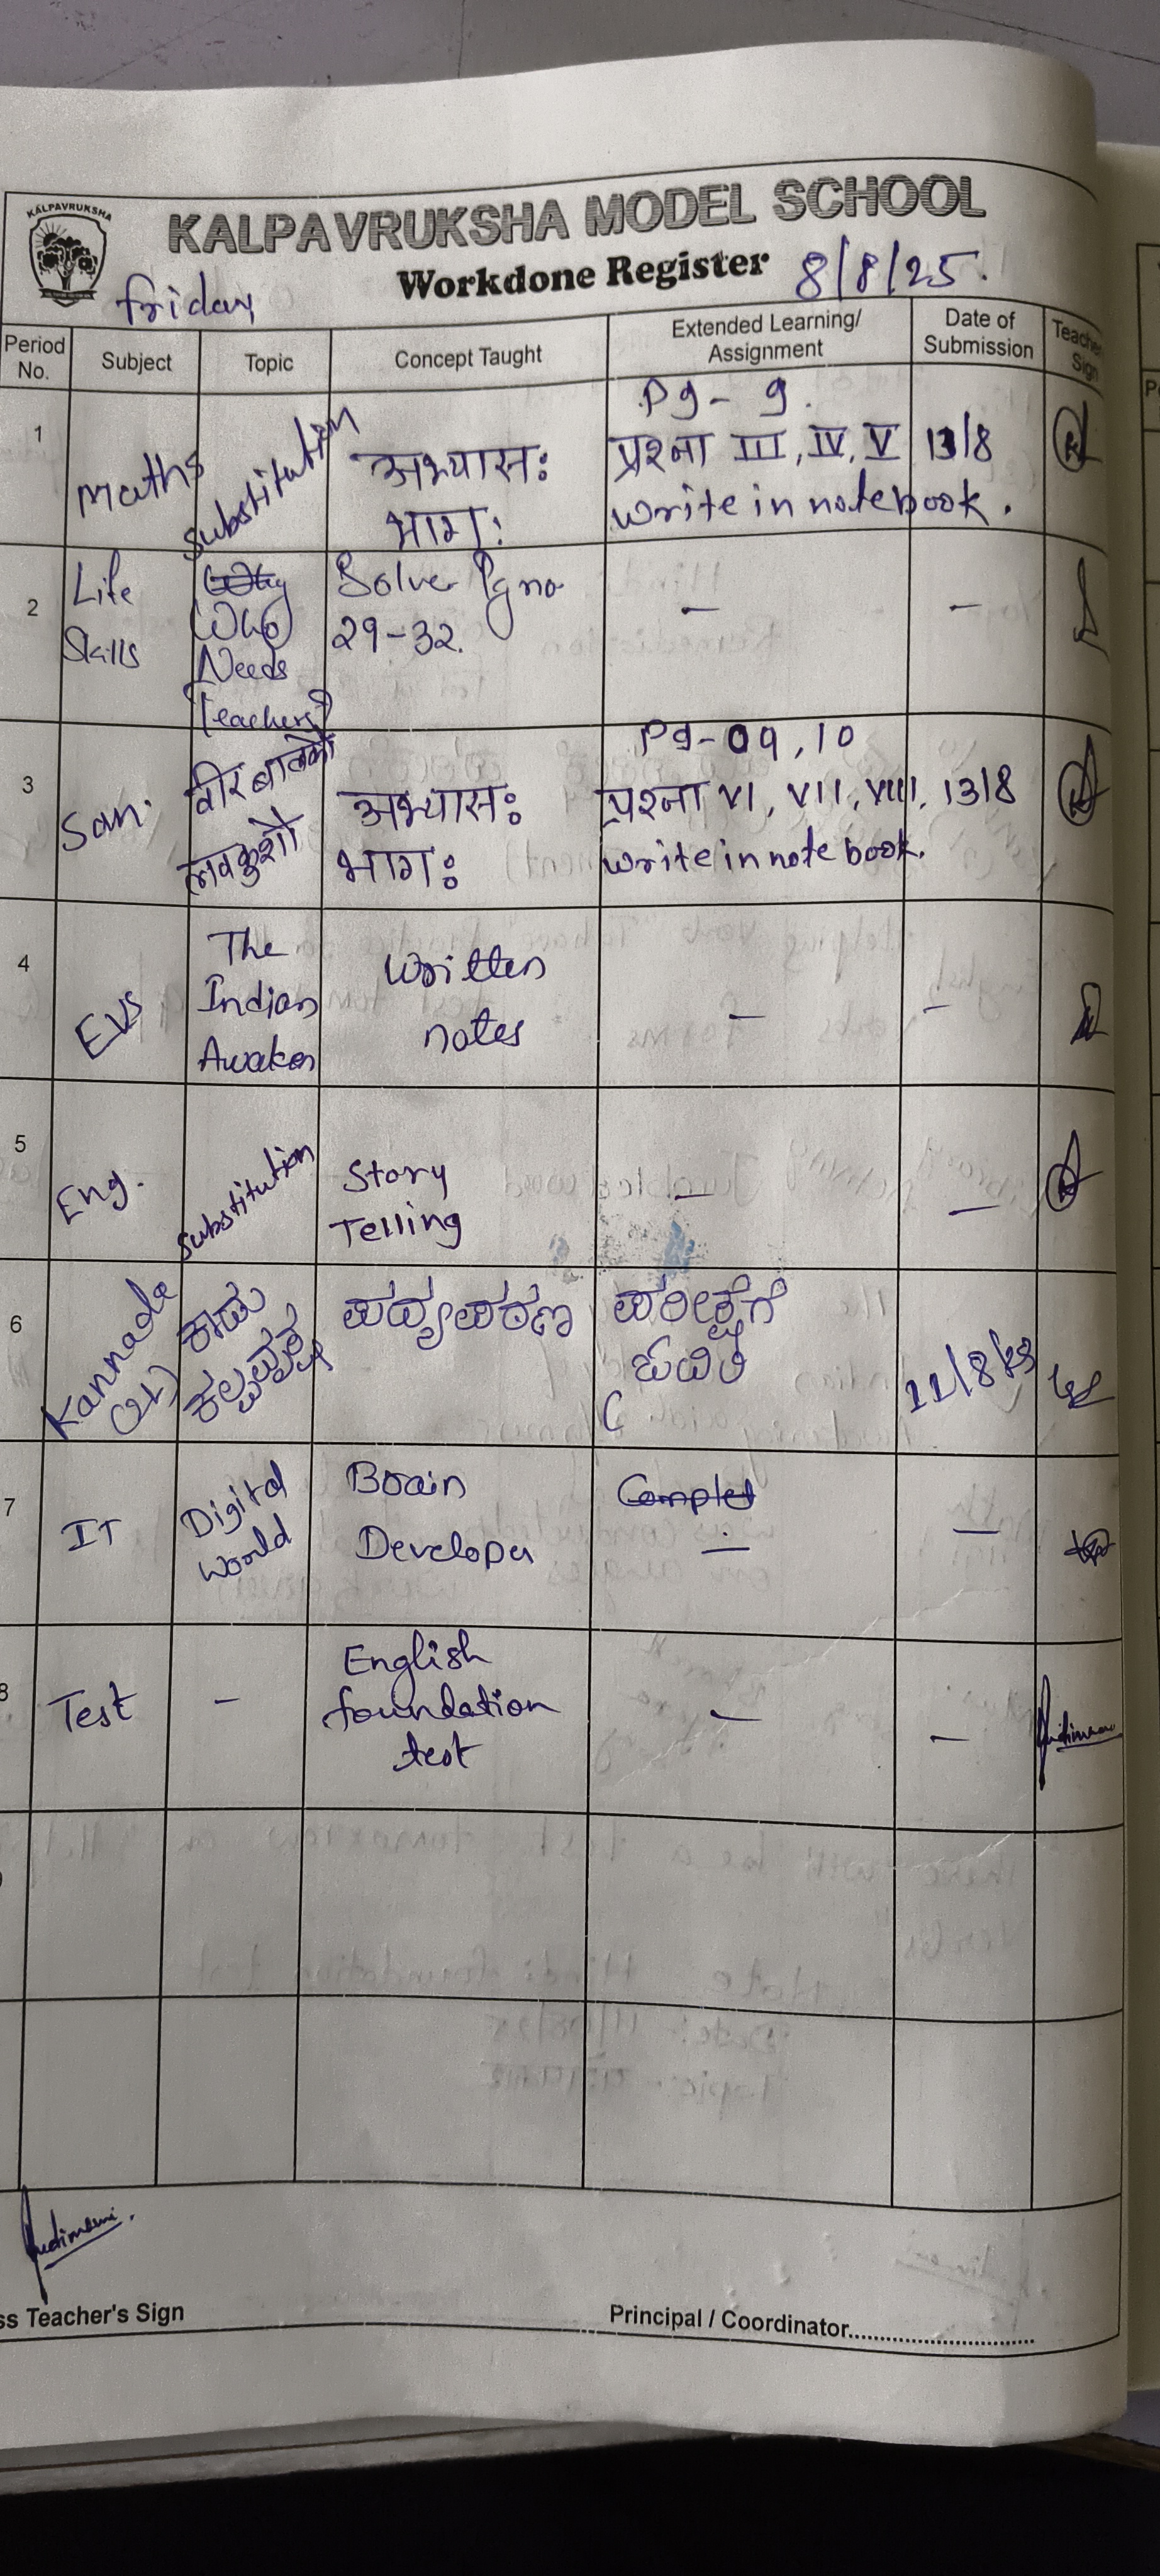 KALPAVRUKSHA
KALPAVRUKSHA MODEL SCHOOL
Workdone Register 8/8/25.
Friday
Period No.
Subject
Topic
Concept Taught
Extended Learning/ Assignment
Date of Submission
Teacher Sign
1
Maths
Substitution
अभ्यासः
भागः
Pg - 9.
प्रश्ना III, IV, V 13/8
write in notebook.
2
Life
Skills
Who
Needs
Teachers?
Solve Pg no
29-32.
–
–
3
San.
वीरबालकौ
लवकुशौ
अभ्यासः
भागः
Pg-09,10
प्रश्ना VI, VII, VIII, 13/8
write in note book.
4
EVS
The
Indian
Awaken
Written
notes
–
–
5
Eng.
Substitution
Story
Telling
–
–
6
Kannada
(2L)
ಕಾಡು
ಪದ್ಯಪಠಣ
ಪರೀಕ್ಷೆಗೆ
11/8/25
7
IT
Digital
World
Brain
Developer
Complet
–
–
8
Test
–
English
foundation
test
–
–
ss Teacher's Sign
Principal / Coordinator